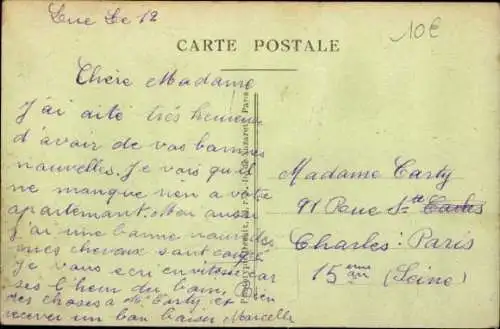 Luc Le 12
10€
CARTE POSTALE
Chère Madame
J'ai aité très heureuse
d'avoir de vos bonnes
nouvelles. Je vois qu'il
ne manque rien a votre
apartemant. Moi aussi
j'ai une bonne nouvelle
mes chevaux sont coupé
Je vous ecri en vitesse car
ses l'heur du bain. Bien
des choses a Mr Carty et
recever un bon baiser Marcelle
Madame Carty
91 Rue St
Charles: Paris
15 eme
(Seine)